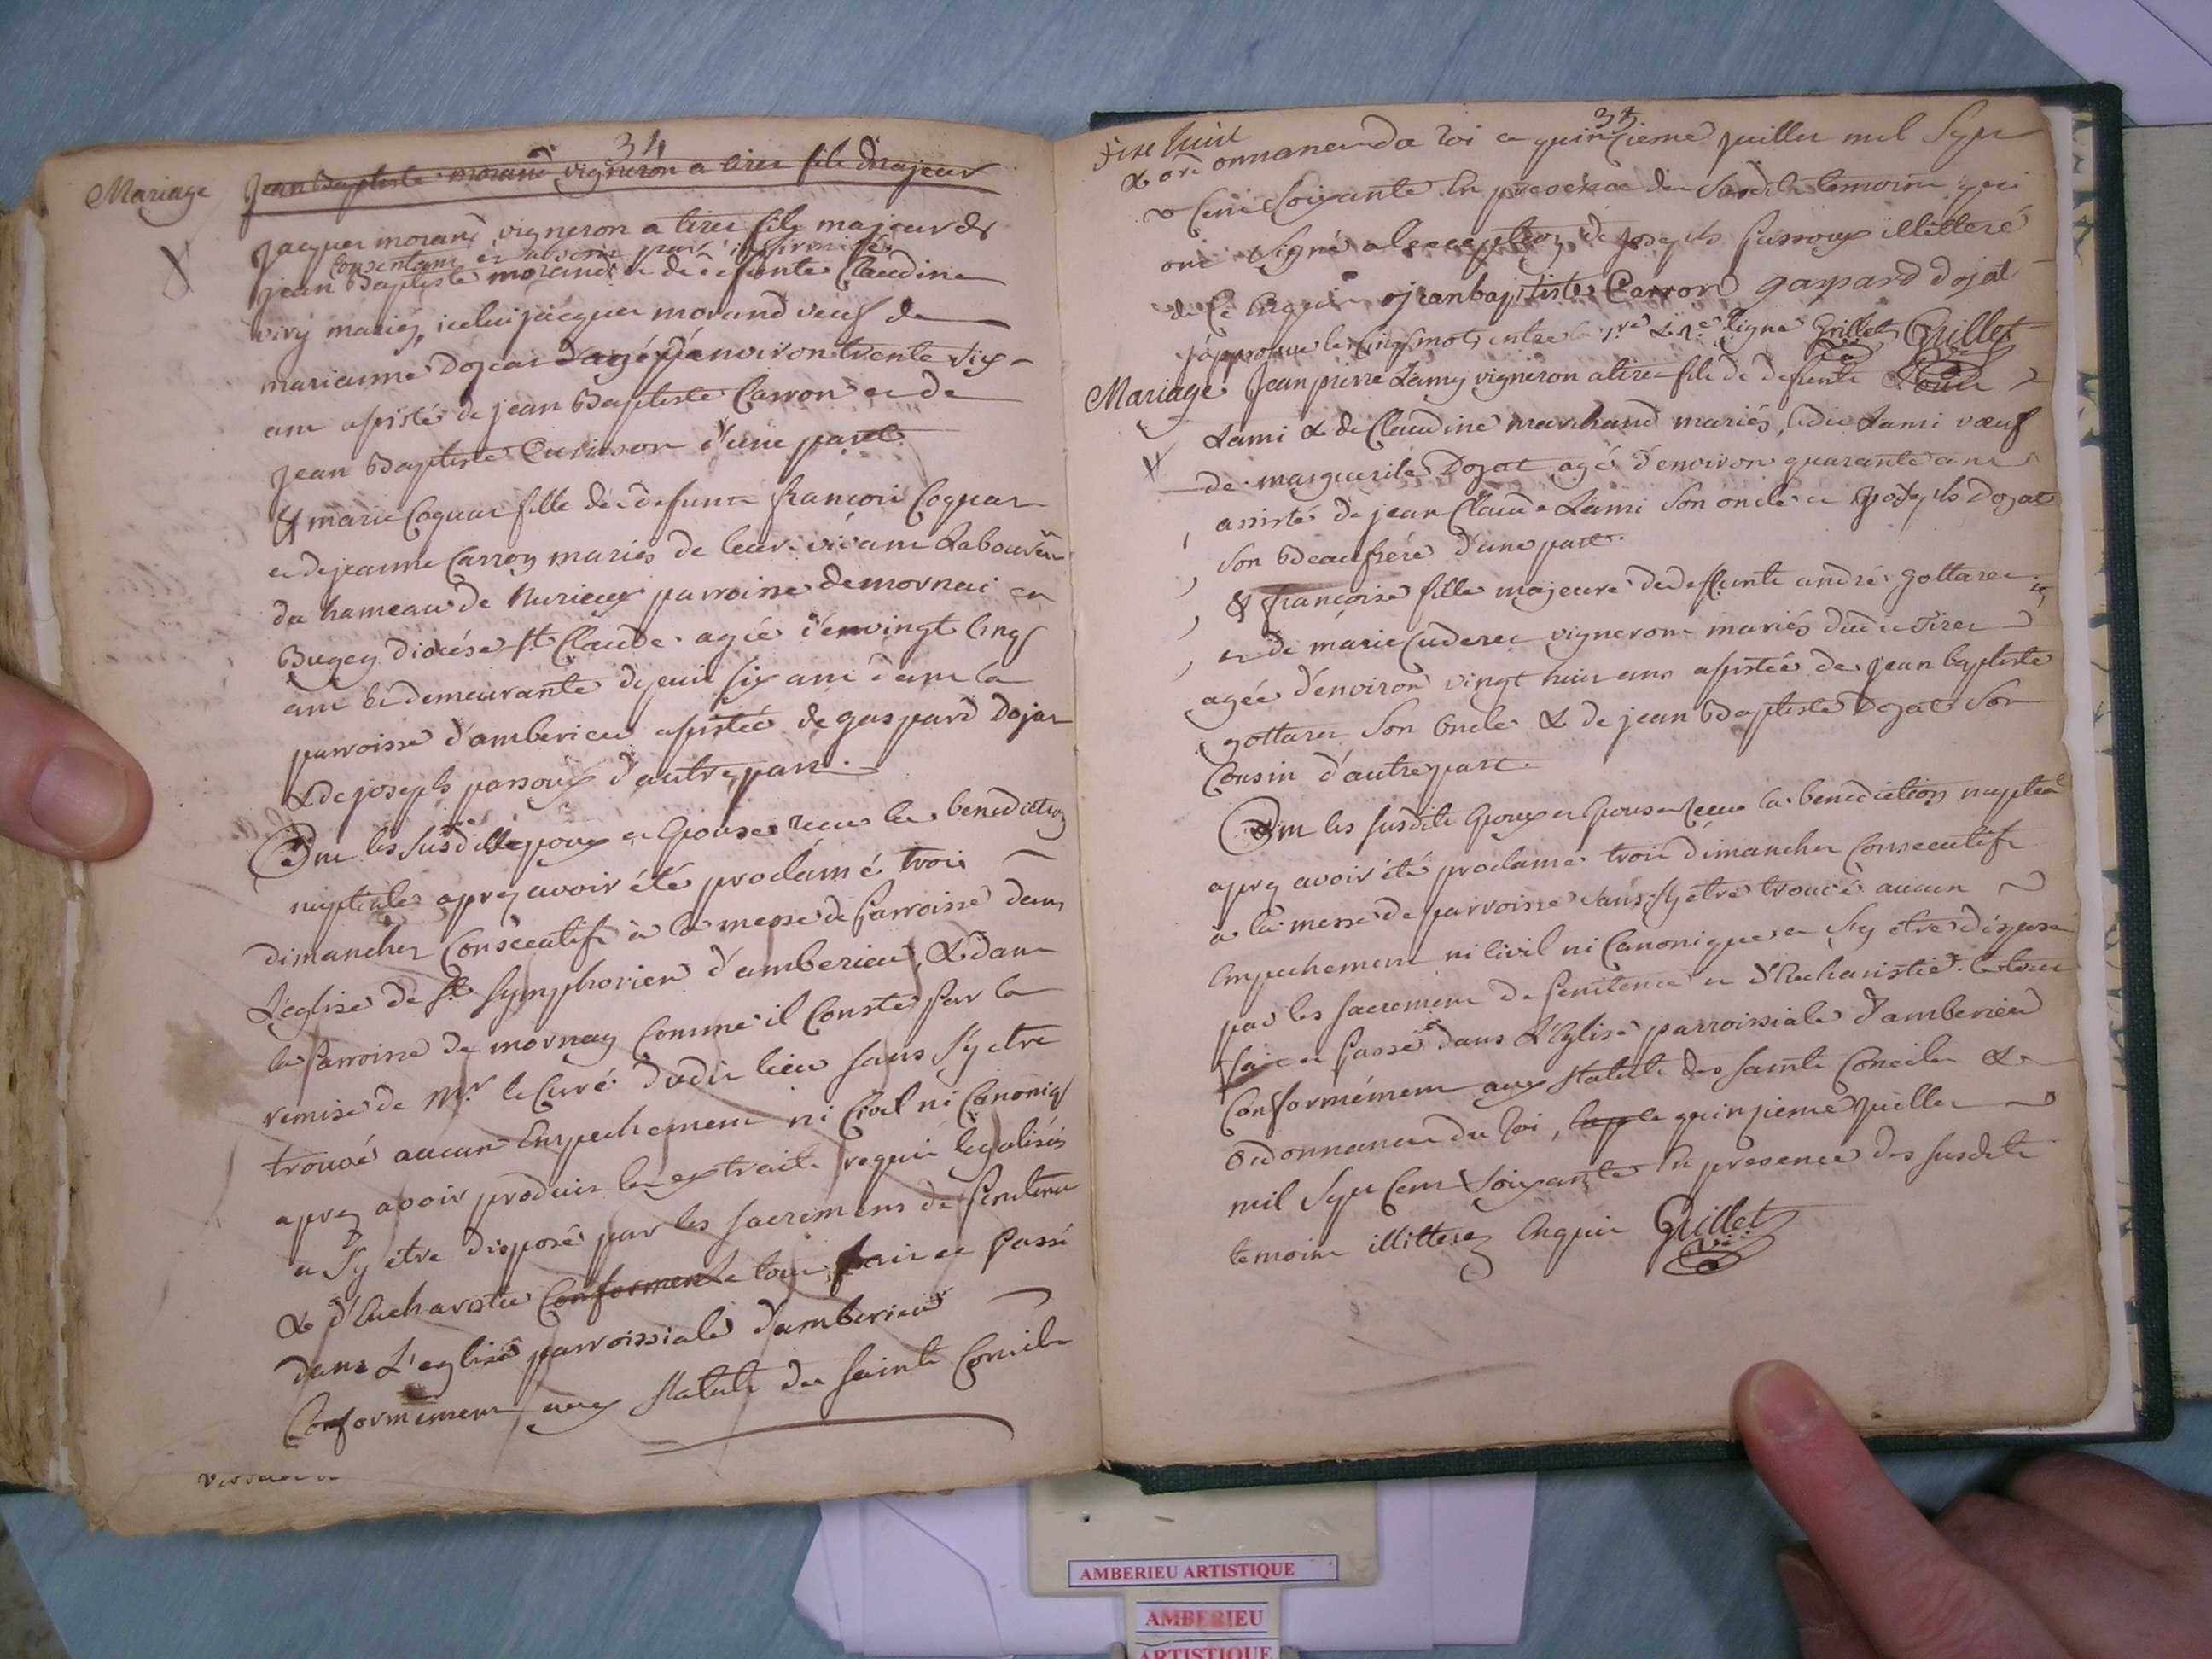 34
Mariage
Jean Baptiste morand vigneron a tirer fils de majeur
Jacques morand vigneron a tirer fils majeur de
Consentant et absent pour infirmité
jean Baptiste morand et de defunte Claudine
viry mariés, icelui jacques morand veuf de
marianne Dojat agé d'environ trente six
ans assisté de jean Baptiste Carron et de
Jean Baptiste d'une part
& marie Coquar fille des defunts françois Coquar
et de jeanne Carron mariés de leur vivant Laboureur
du hameau de Nurieux parroisse de mornai en
Bugey diocése St Claude agée d'en vingt cinq
ans et demeurante depuis six ans dans la
parroisse d'amberieu assistée de gaspard Dojat
& de joseph passoux d'autre part.
Ont les susdits époux et épouse recu la benediction
nuptiale apres avoir été proclamé trois
dimanches consecutifs à la messe de parroisse dans
L'eglise de St Symphorien d'amberieu, & dans
la parroisse de mornay comme il conste par la
remise de Mr le Curé dudit lieu sans s'y etre
trouvé aucun Empechement ni Civil ni Canoniq
apres avoir produit les extraits requis legalisés
et s'y etre disposé par les sacremens de penitence
& d'Eucharistie Conformen Le tout fait et passé
dans L'eglise parroissiale d'amberieu
Conformement aux statuts des saints Conciles
35
& ordonnances du Roi ce quinzieme juillet mil sept
cent soixante En presence des susdits temoins qui
ont signé a l'exception de joseph passoux illitteré
de ce Enquis jean baptiste Carron gaspard dojat
j'approuve les cinq mots entre la 1re & 2e ligne Grillet Grillet
Mariage Jean pierre Lamy vigneron a tirer fils de defunt
Lami & de Claudine marchand mariés, ledit Lami vœuf
de marguerite Dojat agé d'environ quarante ans
assisté de jean Claude Lami son oncle et joseph Dojat
son Beaufrére d'une part.
& françoise fille majeure de defunte andré gottaret
et de marie Cuderet vignerons mariés dudit Tirer
agée d'environ vingt huit ans assistée de jean baptiste
gottaret son oncle & de jean Baptiste Dojat son
Cousin d'autre part.
Ont les susdits Epoux et Epouse recu la benediction nuptial
apres avoir été proclamé trois dimanches consecutifs
a la messe de parroisse sans s'y etre trouvé aucun
Empechement ni Civil ni Canonique et s'y etre disposé
par les sacremens de penitence et d'Eucharistie le tout
fait et passé dans L'Eglise parroissiale d'amberieu
Conformément aux statuts des saints Conciles &
ordonnances du Roi, le quinzieme juillet
mil sept cent soixante En presence des susdits
temoins illitterez Enquis Grillet
AMBERIEU ARTISTIQUE
AMBERIEU
ARTISTIQUE